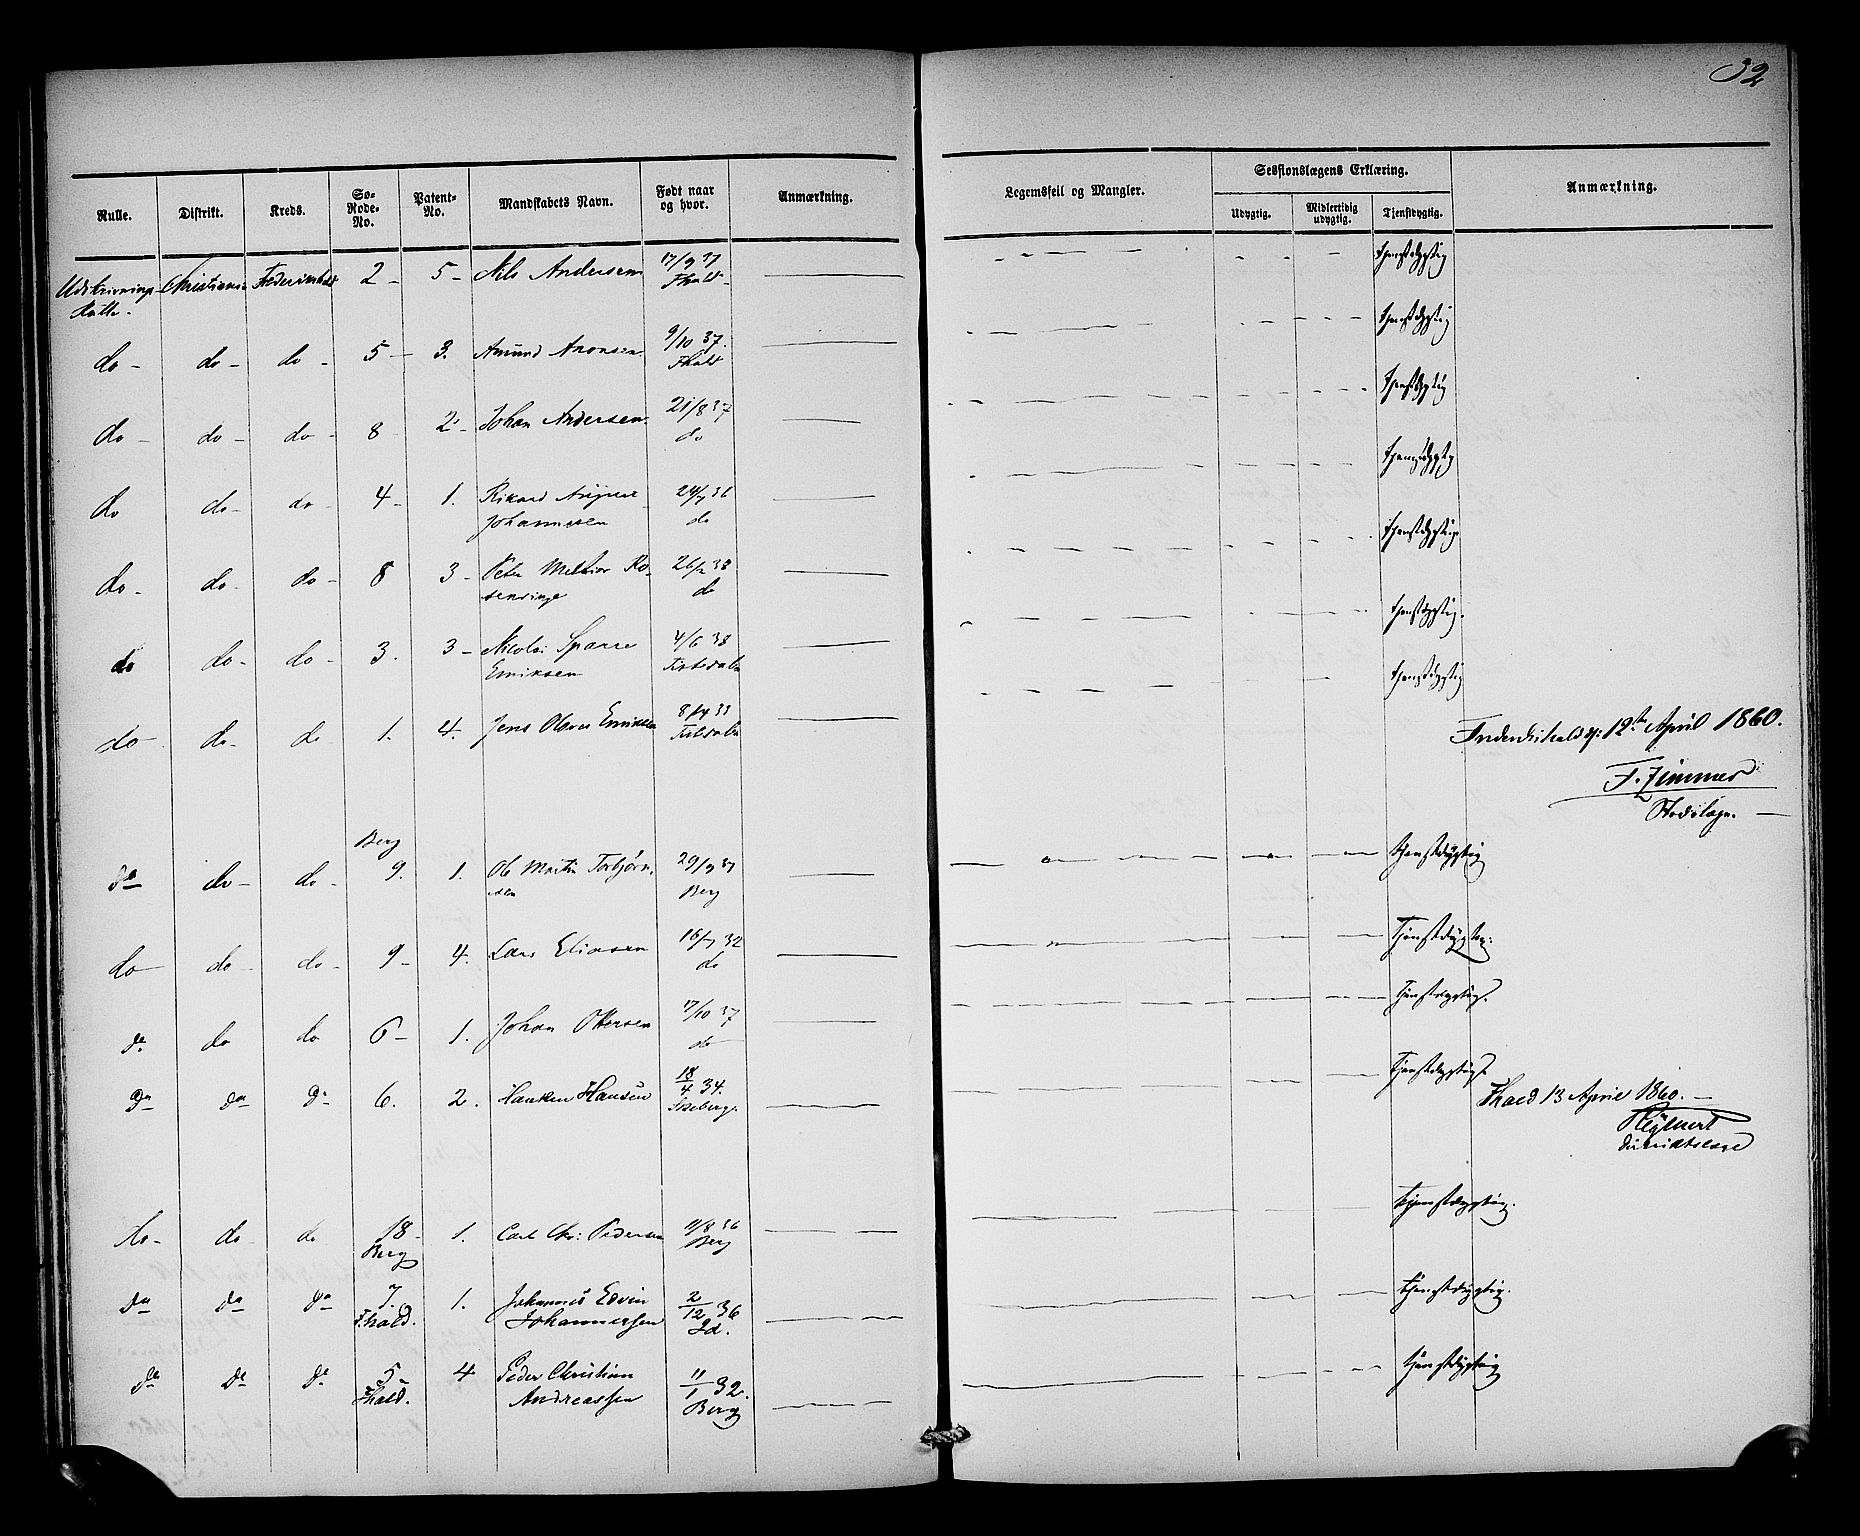 32
Rulle. Distrikt. Kreds. Sø-Rode-No. Patent-No. Mandskabets Navn. Født naar og hvor. Anmærkning. Legemsfeil og Mangler. Sessionslægens Erklæring. Udygtig. Midlertidig udygtig. Tjenstdygtig. Anmærkning.
Udskrivnings- Christiania Frederikshald 2 - 5 - Nils Andersen 17/9 37 Tjenstdygtig
Rulle. Fhald -
do - do - do - 5 - 3. Amund Aronsen 9/10 37. Tjenstdygtig
Fhald
do - do - do - 8 2 - Johan Andersen 21/8 37 Tjenstdygtig
do
do do - do - 4 - 1. Rikard 24/7 36 Tjenstdygtig
Johannesen do
do - do - do - 8 3 - Peter Melkior Ro- 26/2 38 Tjenstdygtig
senvinge do
do do - do - 3. 3 - Nicolai Sparre 4/6 38 Tjenstdygtig.
Emiksen Tistedalen
do do - do 1. 4. Jens Olaves Emiksen 33 Tjenstdygtig
Tistedalen
Frederikshald 12te April 1860.
F. Zimmer
Berg
do do - do - 9. 1. Ole Martin Torbjørn- 29/9 37 tjenstdygtig
sen Berg
do do - do - 9 - 4. Lars Eliasen 16/7 32 Tjenstdygtig.
do
do do do 6 - 1. Johan Ottersen 17/10 37 Tjenstdygtig.
do
do do do 6. 2. Hansen 18/4 34. Tjenstdygtig.
Skeberg.
Fhald 13 April 1860. -
do - do - do 18 - 1. Carl Chr: Pedersen 11/8 36 tjenstdygtig.
Berg Berg
do do do 7. 1. Johannes Edvin 2/12 36 tjenstdygtig.
F.hald. Johannessen Id.
do do do 5 4 Peder Christian 11/1 32. tjenstdygtig
Fhald. Andreassen Berg